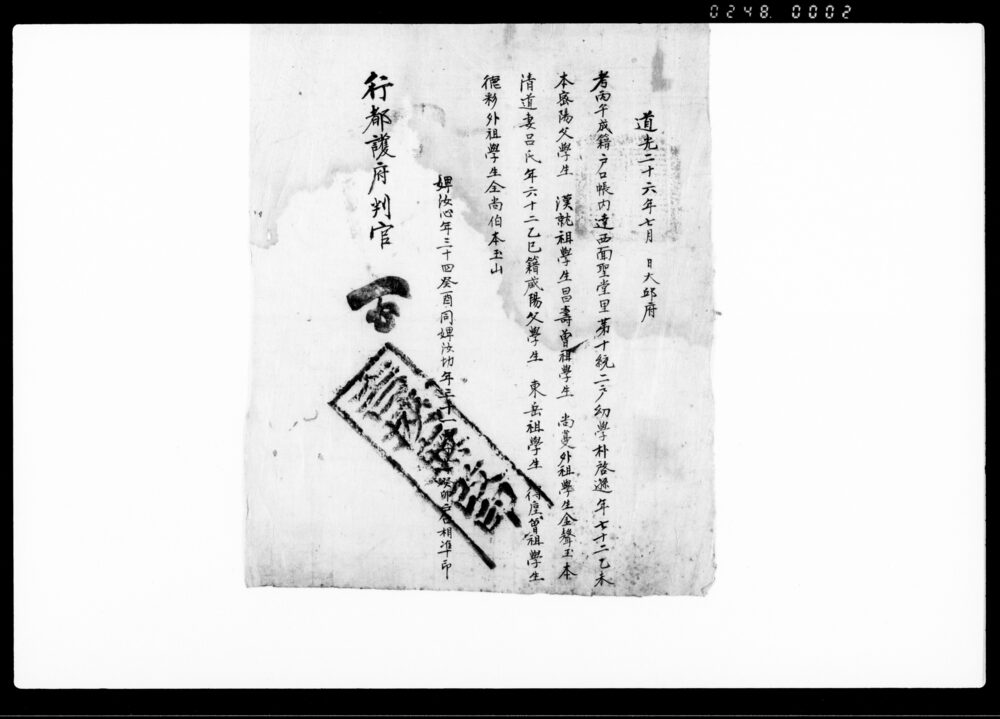 0248. 0002
道光二十六年七月 日大邱府
考丙午成籍戶口帳內達西面聖堂里第十統二戶幼學朴啓遜年七十二乙未
本密陽父學生 漢就祖學生昌壽曾祖學生 尚蔓外祖學生金聲玉本
清道妻呂氏年六十二乙巳籍咸陽父學生 東岳祖學生 得度曾祖學生
德彩外祖學生全尚伯本玉山
婢汝心年三十四癸酉同婢汝切年三十一 癸卯戶口相準印
行都護府判官